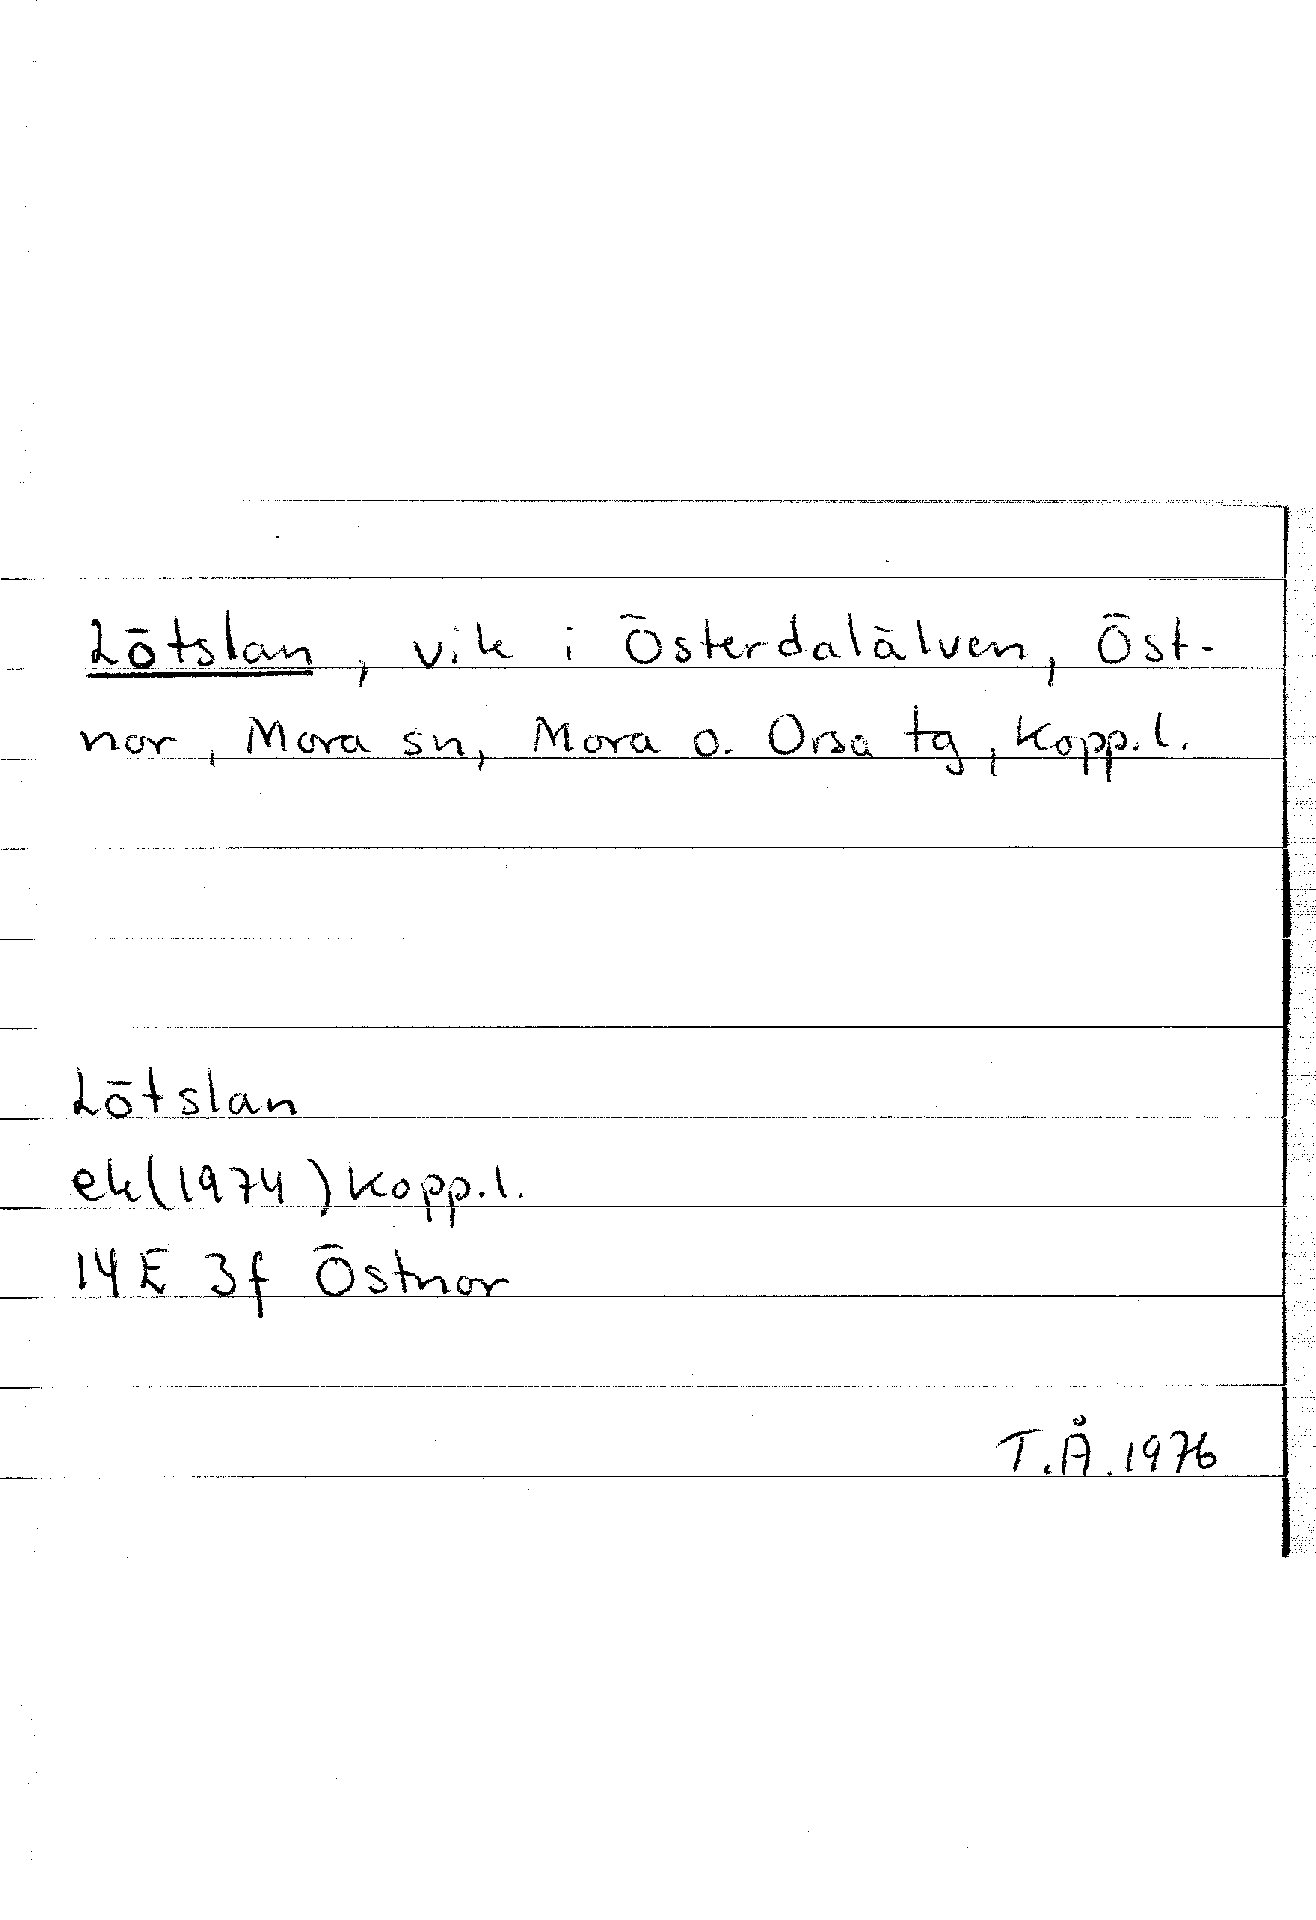 Lötslan, vik i Österdalälven, Öst-
nor, Mora sn, Mora o. Orsa tg, Kopp.l.
Lötslan
ek(1974) Kopp.l.
14E 3f Östnor
T.Å. 1976